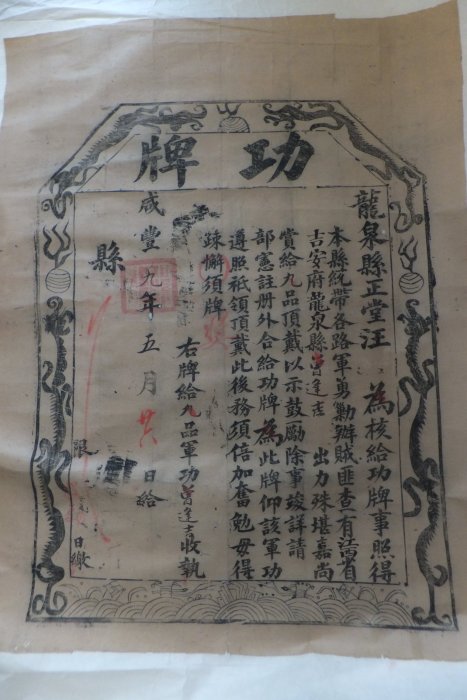 功牌
龍泉縣正堂汪 為核給功牌事照得
本縣統帶各路軍勇勦辦賊匪查有江西省
吉安府龍泉縣曾逢吉 出力殊堪嘉尚
賞給九品頂戴以示鼓勵除事竣詳請
部憲註册外合給功牌為此牌仰該軍功
遵照祗領頂戴此後務須倍加奮勉毋得
疎懈須牌
右牌給九品軍功曾逢吉收執
咸豐九年五月廿 日給
縣
限 日繳